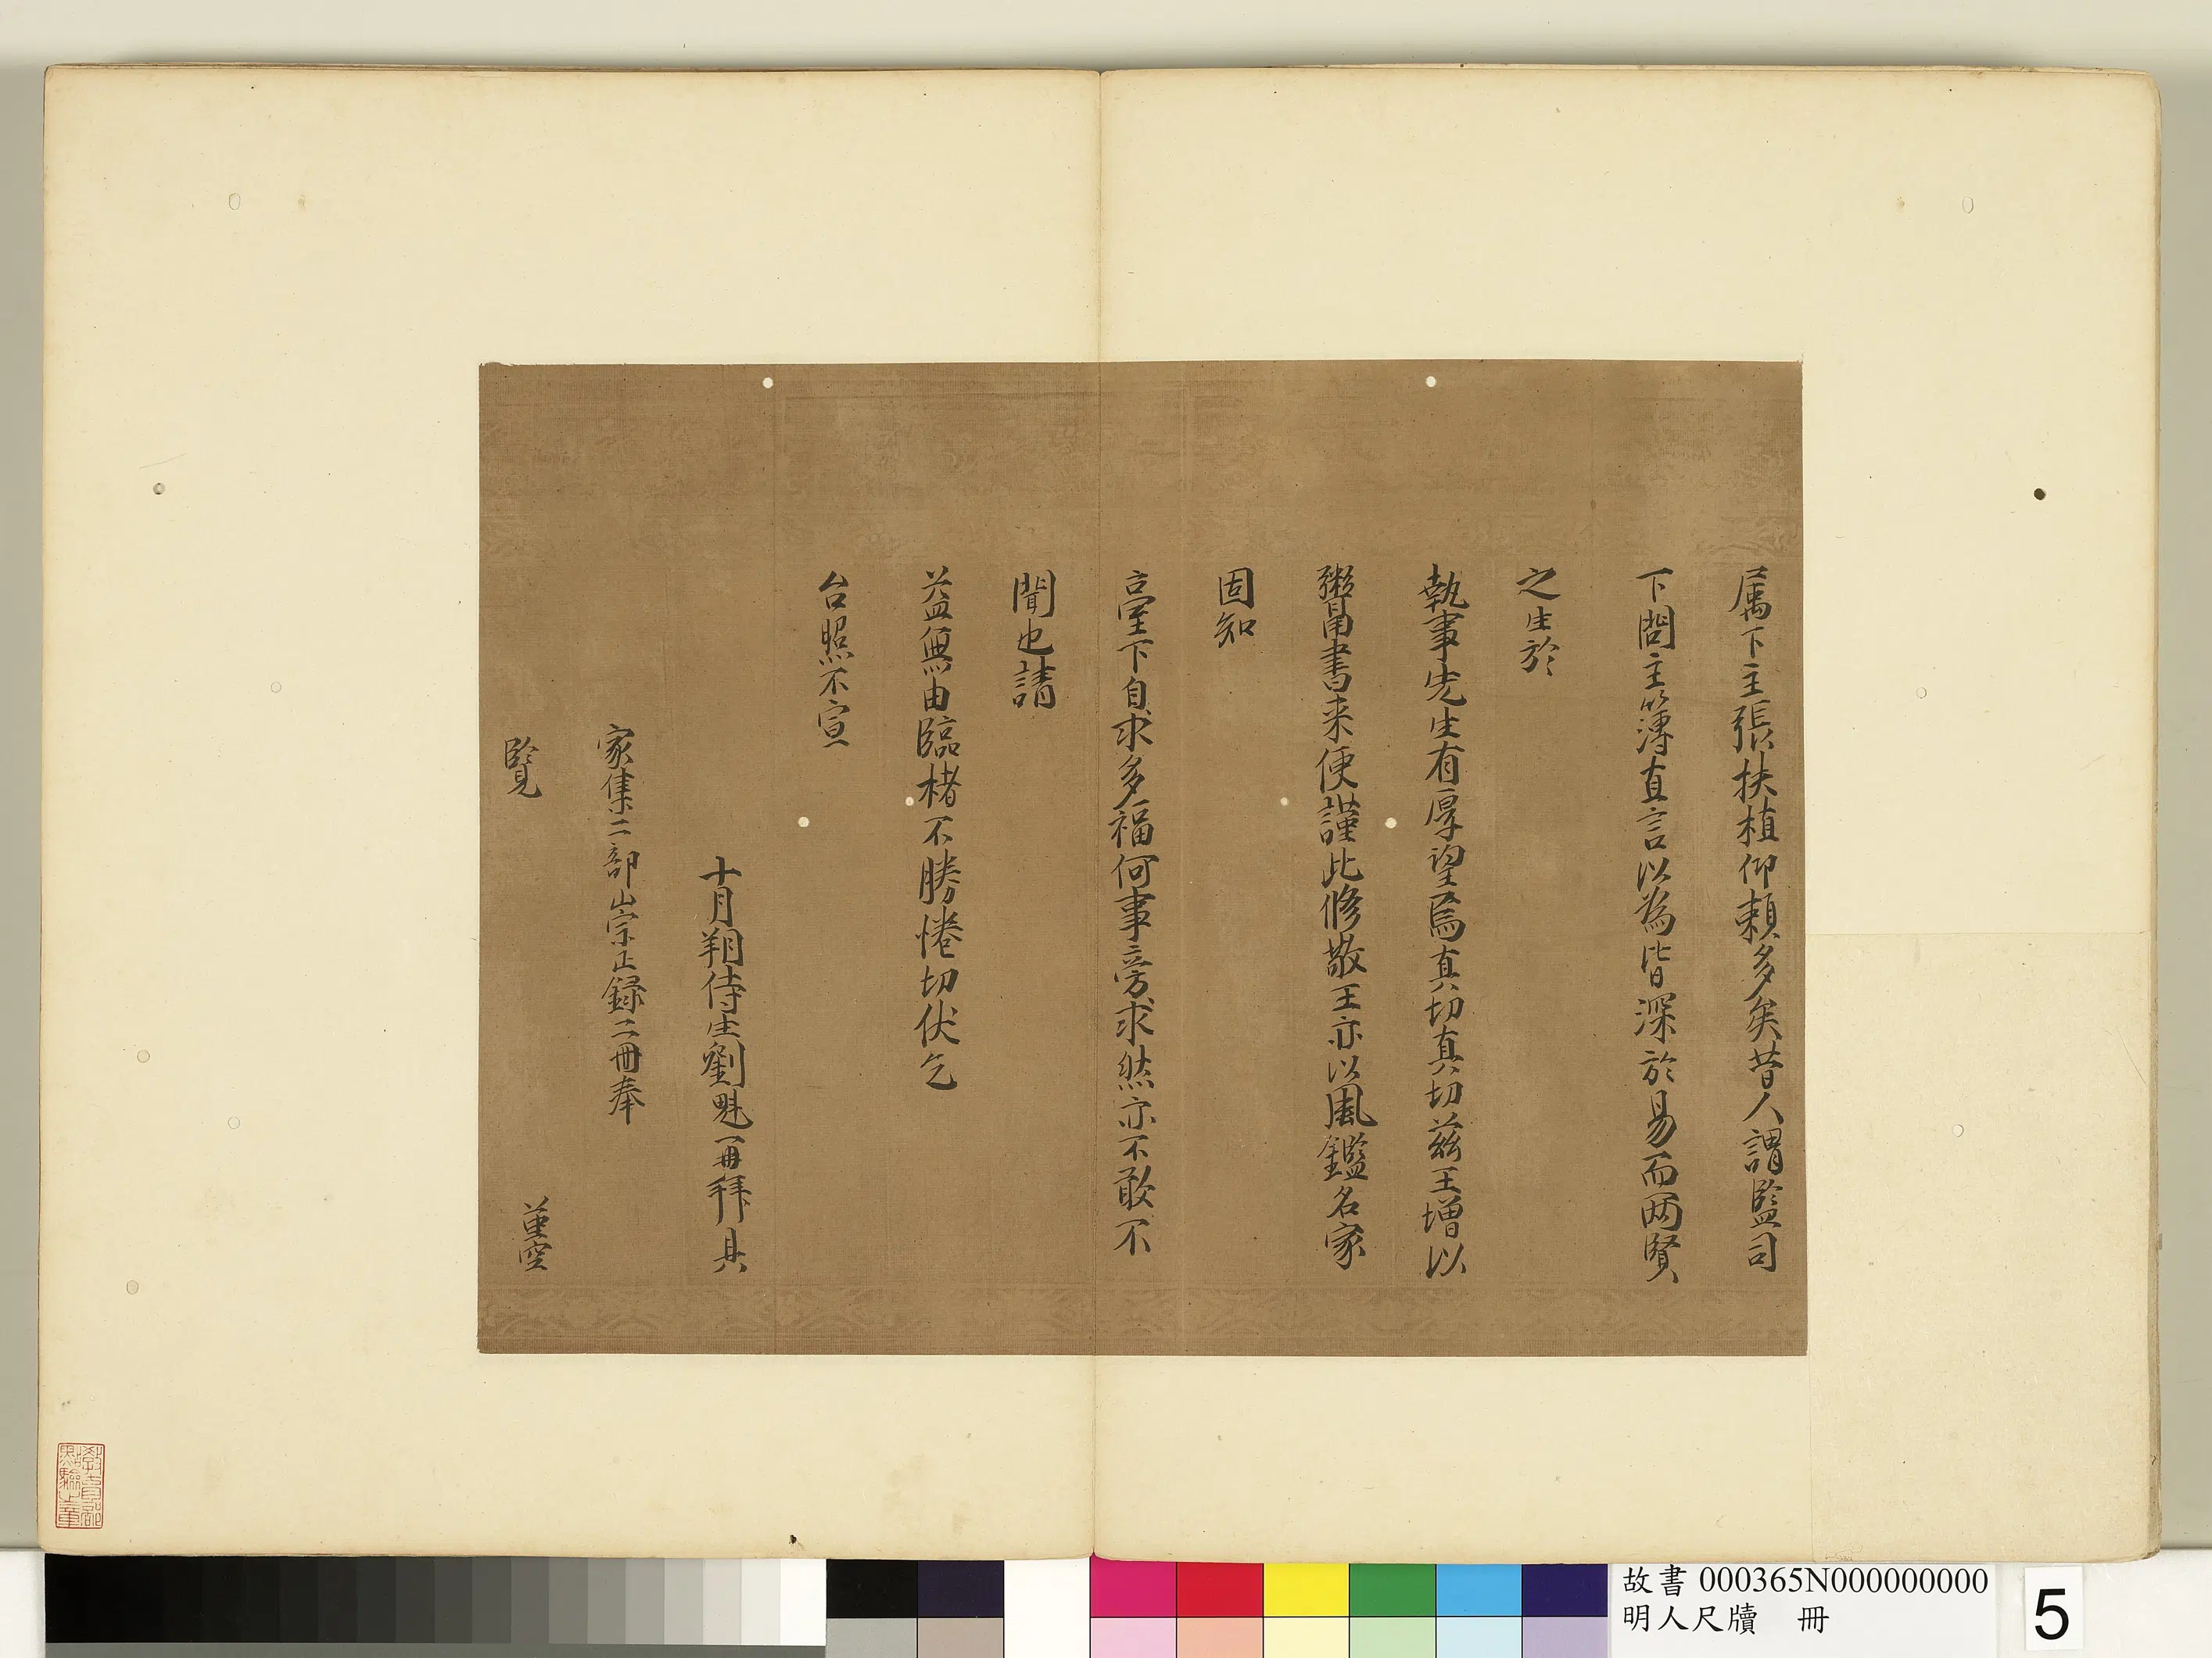 属下主張扶植仰賴多矣昔人謂監司
下問主簿直言以為皆深於易而两賢
之生於
執事先生有厚望焉真切真切茲王增以
鬻書来便謹此修敬王亦以風鑑名家
固知
臺下自求多福何事旁求然亦不敢不
聞也請
益無由臨楮不勝惓切伏乞
台照不宣
十月朔侍生劉魁再拜具
家集二部山宗正録二冊奉
覽
故書 000365N000000000
明人尺牘 冊
5